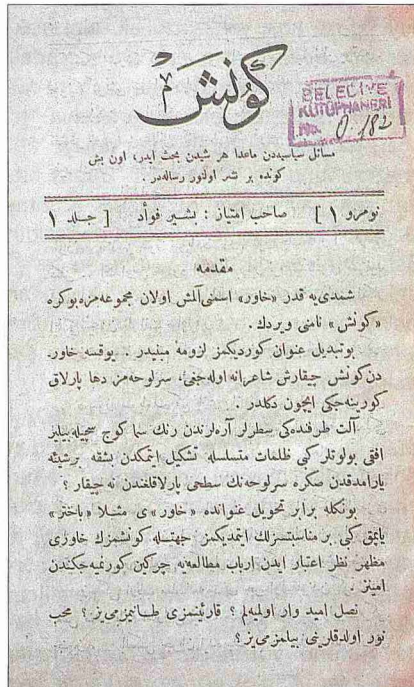 كونش
BELEDİYE
KÜTÜPHANERİ
No. O.182
مسائل سیاسیه‌دن ماعدا هر شیدن بحث ایدر، اون بش
كونده بر نشر اولنور رساله‌در .
نومرو ۱ ] صاحب امتیاز : بشیر فوأد [ جلد ۱
مقدمه
شمدی‌یه قدر «خاور» اسمنی آلمش اولان مجموعه‌مزه بوكره
«كونش» نامنی ویردك .
بوتبدیل عنوان كوردیكمز لزومه مبنیدر . یوقسه خاور-
دن كونش چیقارش شاعرانه اوله‌جغی، سرلوحه‌مز دها پارلاق
كورینه‌جكی ایچون دكلدر .
آلت طرفنده‌كی سطرلر آره‌لرندن رنك سما كوج سچیله‌بیلیر
افقی بولوتلر كبی ظلمات متسلسله تشكیل ایتمكدن بشقه برشیئه
یارامدقدن صكره سرلوحه‌نك سطحی پارلاقلغندن نه چیقار ؟
بونكله برابر تحویل عنوانده «خاور»ی مثلا «باختر»
یاپمق كبی بر مناسبتسزلك ایتمدیكمز جهتله كونشمزك خاوری
مظهر نظر اعتبار ایدن ارباب مطالعه‌یه چركین كورنمیه‌جكندن
امینز .
نصل امید وار اولمیه‌لم ؟ قارئلرمزی طانیمزمی‌یز ؟ محب
نور اولدقلرینی بیلمزمی‌یز ؟